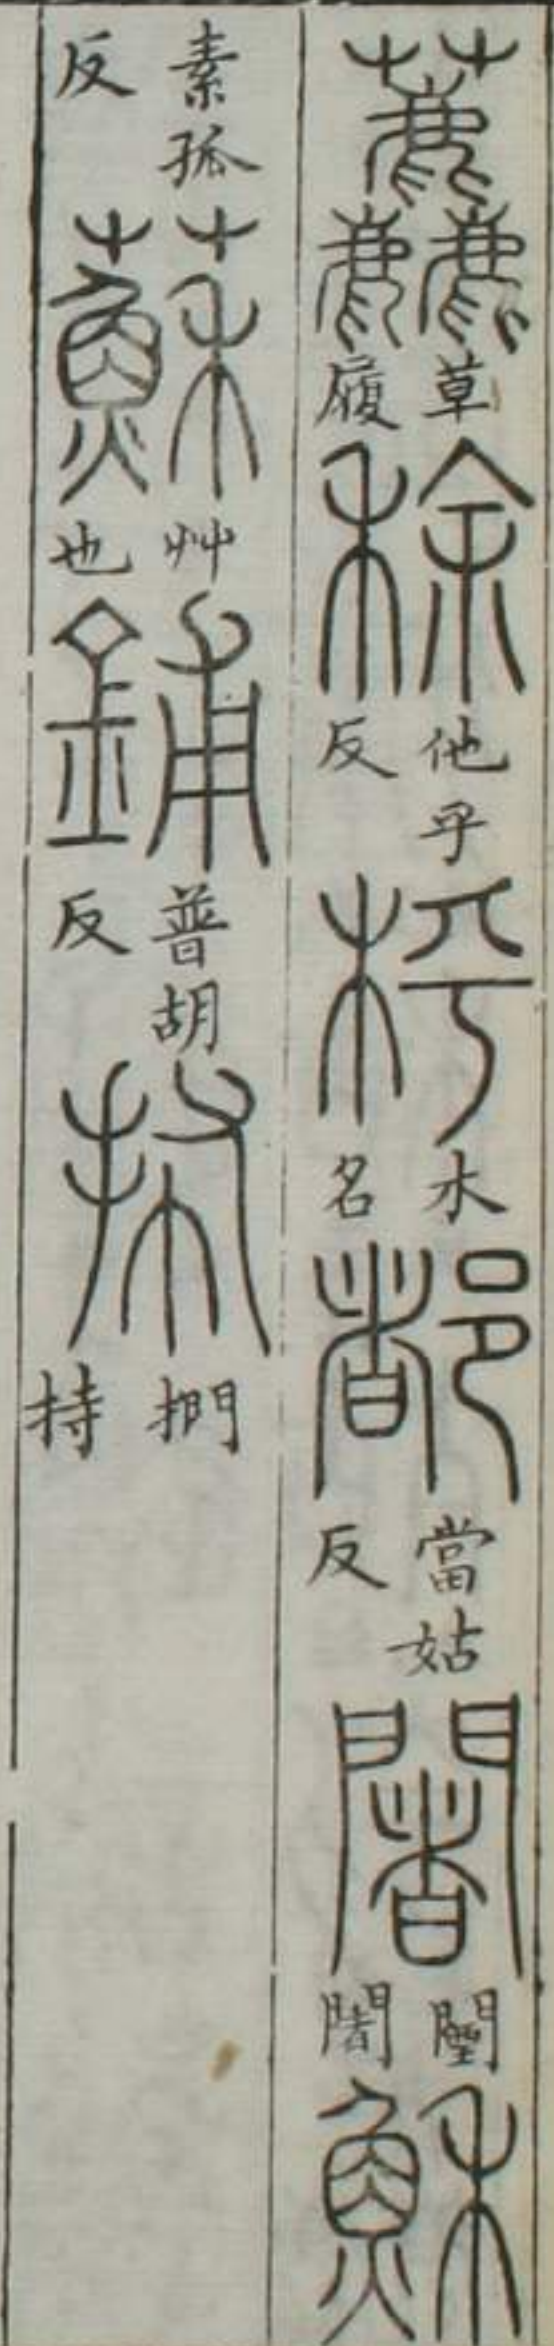 𧆓草履稌他乎反㭔木名都當姑反闍闉闍穌
素孤反蘇艸也鋪普胡反抪捫持